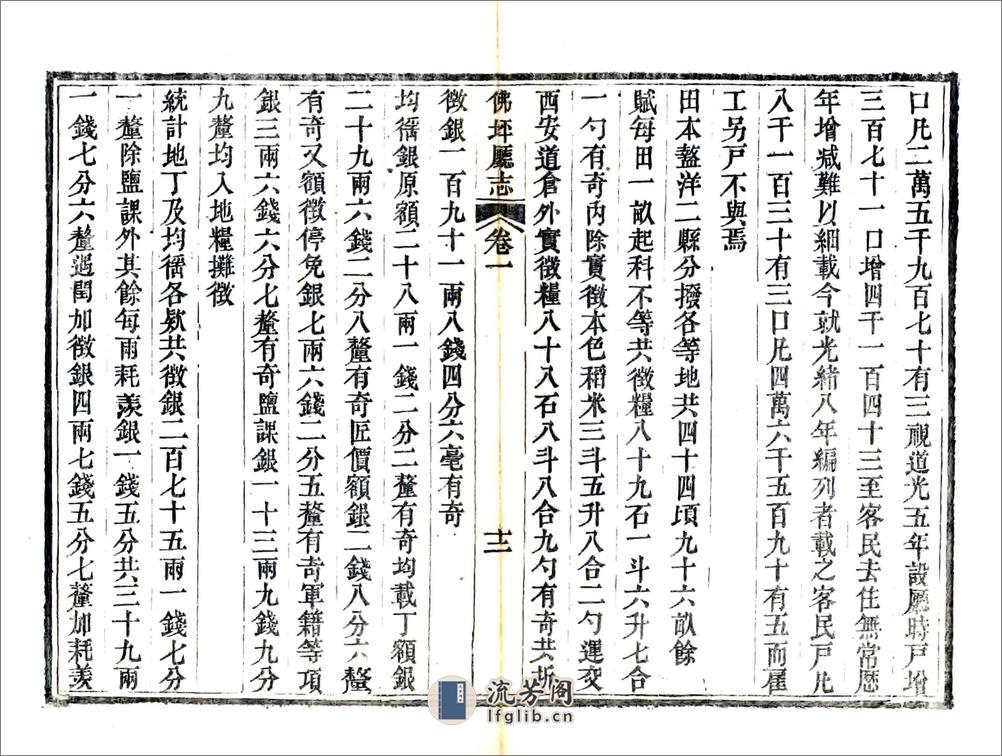 口凡二萬五千九百七十有三視道光五年設廳時戸增
三百七十一口增四千一百四十三至客民去住無常歷
年增減難以細載今就光緒八年編列者載之客民戸凡
八千一百三十有三口凡四萬六千五百九十有五而雇
工另戸不與焉
田本盩洋二縣分撥各等地共四十四頃九十六畝餘
賦每田一畝起科不等共徵糧八十九石一斗六升七合
一勺有奇内除實徵本色稻米三斗五升八合二勺運交
西安道倉外實徵糧八十八石八斗八合九勺有奇共折
佛坪廳志
卷一
十二
徵銀一百九十一兩八錢四分六毫有奇
均徭銀原額二十八兩一錢二分二釐有奇均載丁額銀
二十九兩六錢二分八釐有奇匠價額銀二錢八分六釐
有奇又額徵停免銀七兩六錢二分五釐有奇軍籍等項
銀三兩六錢六分七釐有奇鹽課銀一十三兩九錢九分
九釐均入地糧攤徵
統計地丁及均徭各欵共徵銀二百七十五兩一錢七分
一釐除鹽課外其餘每兩耗羨銀一錢五分共三十九兩
一錢七分六釐遇閏加徵銀四兩七錢五分七釐加耗羨
流芳阁
lfglib.cn